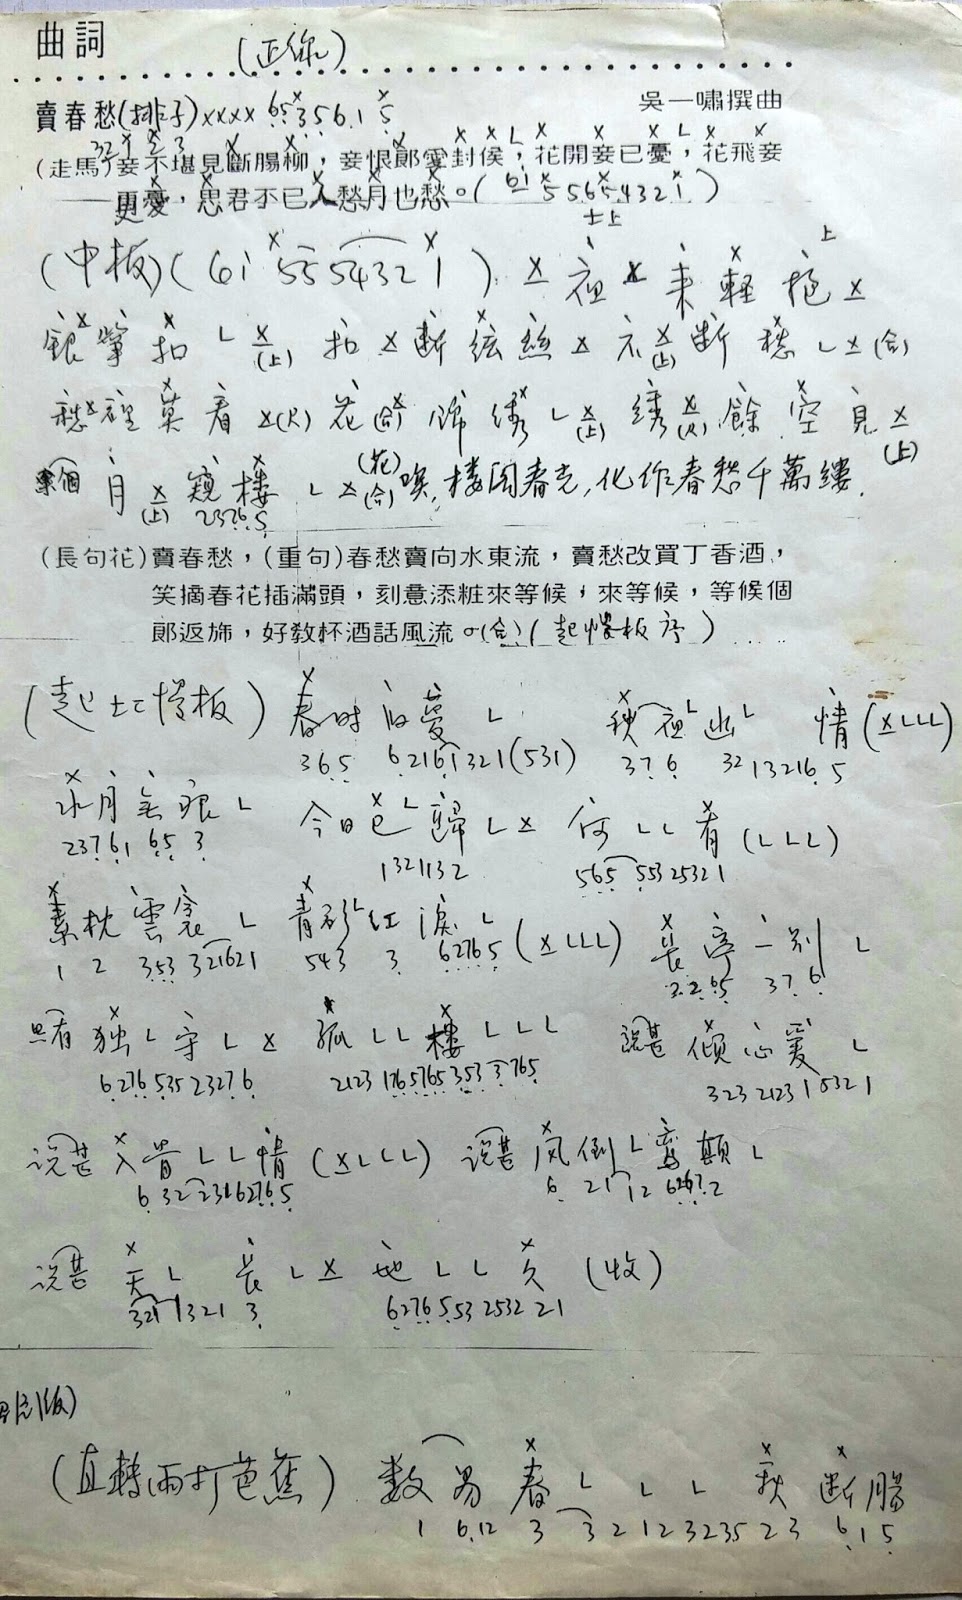 曲詞 (正線)
賣春愁(排子)xxxx 65356.1 5 吳一嘯撰曲
(走馬)妾不堪見斷腸柳，妾恨郞愛封侯，花開妾已憂，花飛妾
更憂，思君不已人愁月也愁。(6i 5565432 i)
士上
(中板)(6i 5555432 1) 夜來輕抱
上
銀箏扣 (上) 扣 断絃絲 不(上)断愁 (合)
愁裡莫看 (尺) 花(合)飾绣 (上) 绣(尺)餘空見 (上)
個月(上)窺樓 (合) (花)唉,楼閣春老,化作春愁千萬縷.
23265
(長句花)賣春愁，(重句)春愁賣向水東流，賣愁改買丁香酒，
笑摘春花插滿頭，刻意添粧來等候，來等候，等候個
郞返旆，好教杯酒話風流。(合)(起慢板序)
(起士工慢板) 春时 旧夢 L 秋夜幽L 情(xLLL)
365 62161321(531) 376 3213216.5
水月無痕 L 今日已L歸 L x 何 L L 有(LLL)
237.61 65 3 1321132 565 55325321
素枕雲衾 L 青衫L红淚 L (xLLL) 長亭一别 L
1 2 353 321621 543 3 62765 2.265 376
独L守L x 孤 L L 樓 L L L 説甚 傾心爱 L
6276535 23276 2123 1765765353 3765 323 212315321
説甚入骨 L L 情(xLLL) 説甚风倒L鸞顛 L
6 32 23162765 6 21 12
説甚 天 L 長 L x 地 L L 久 (收)
3211321 3 6276553 2532 21
(直轉雨打芭蕉) 数易春 L L L 秋断腸
1 6.12 3 3 2 12 3235 23 6 1 5